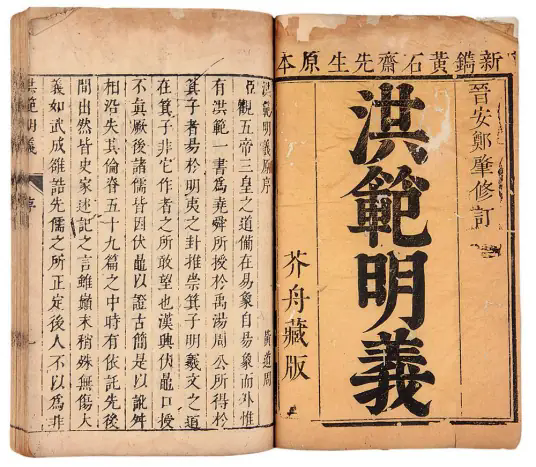 新鐫黃石齋先生原本
晉安鄭肇修訂
洪範明義
芥舟藏版
洪範明義原序 黃道周
觀五帝三皇之道備在易象自易象而外惟
有洪範一書為堯舜所授於禹湯周公所得於
箕子者易於明夷之卦推崇箕子明羲文之道
在箕子非它作者之所敢望也漢興伏鼂口授
不真厥後諸儒皆因伏鼂以證古簡是以訛舛
相沿失其倫脊五十九篇之中時有依託先後
間出然皆史家述記之言雖顛末稍殊無傷大
義如武成雒誥先儒之所正定後人不以為非
洪範明義 序